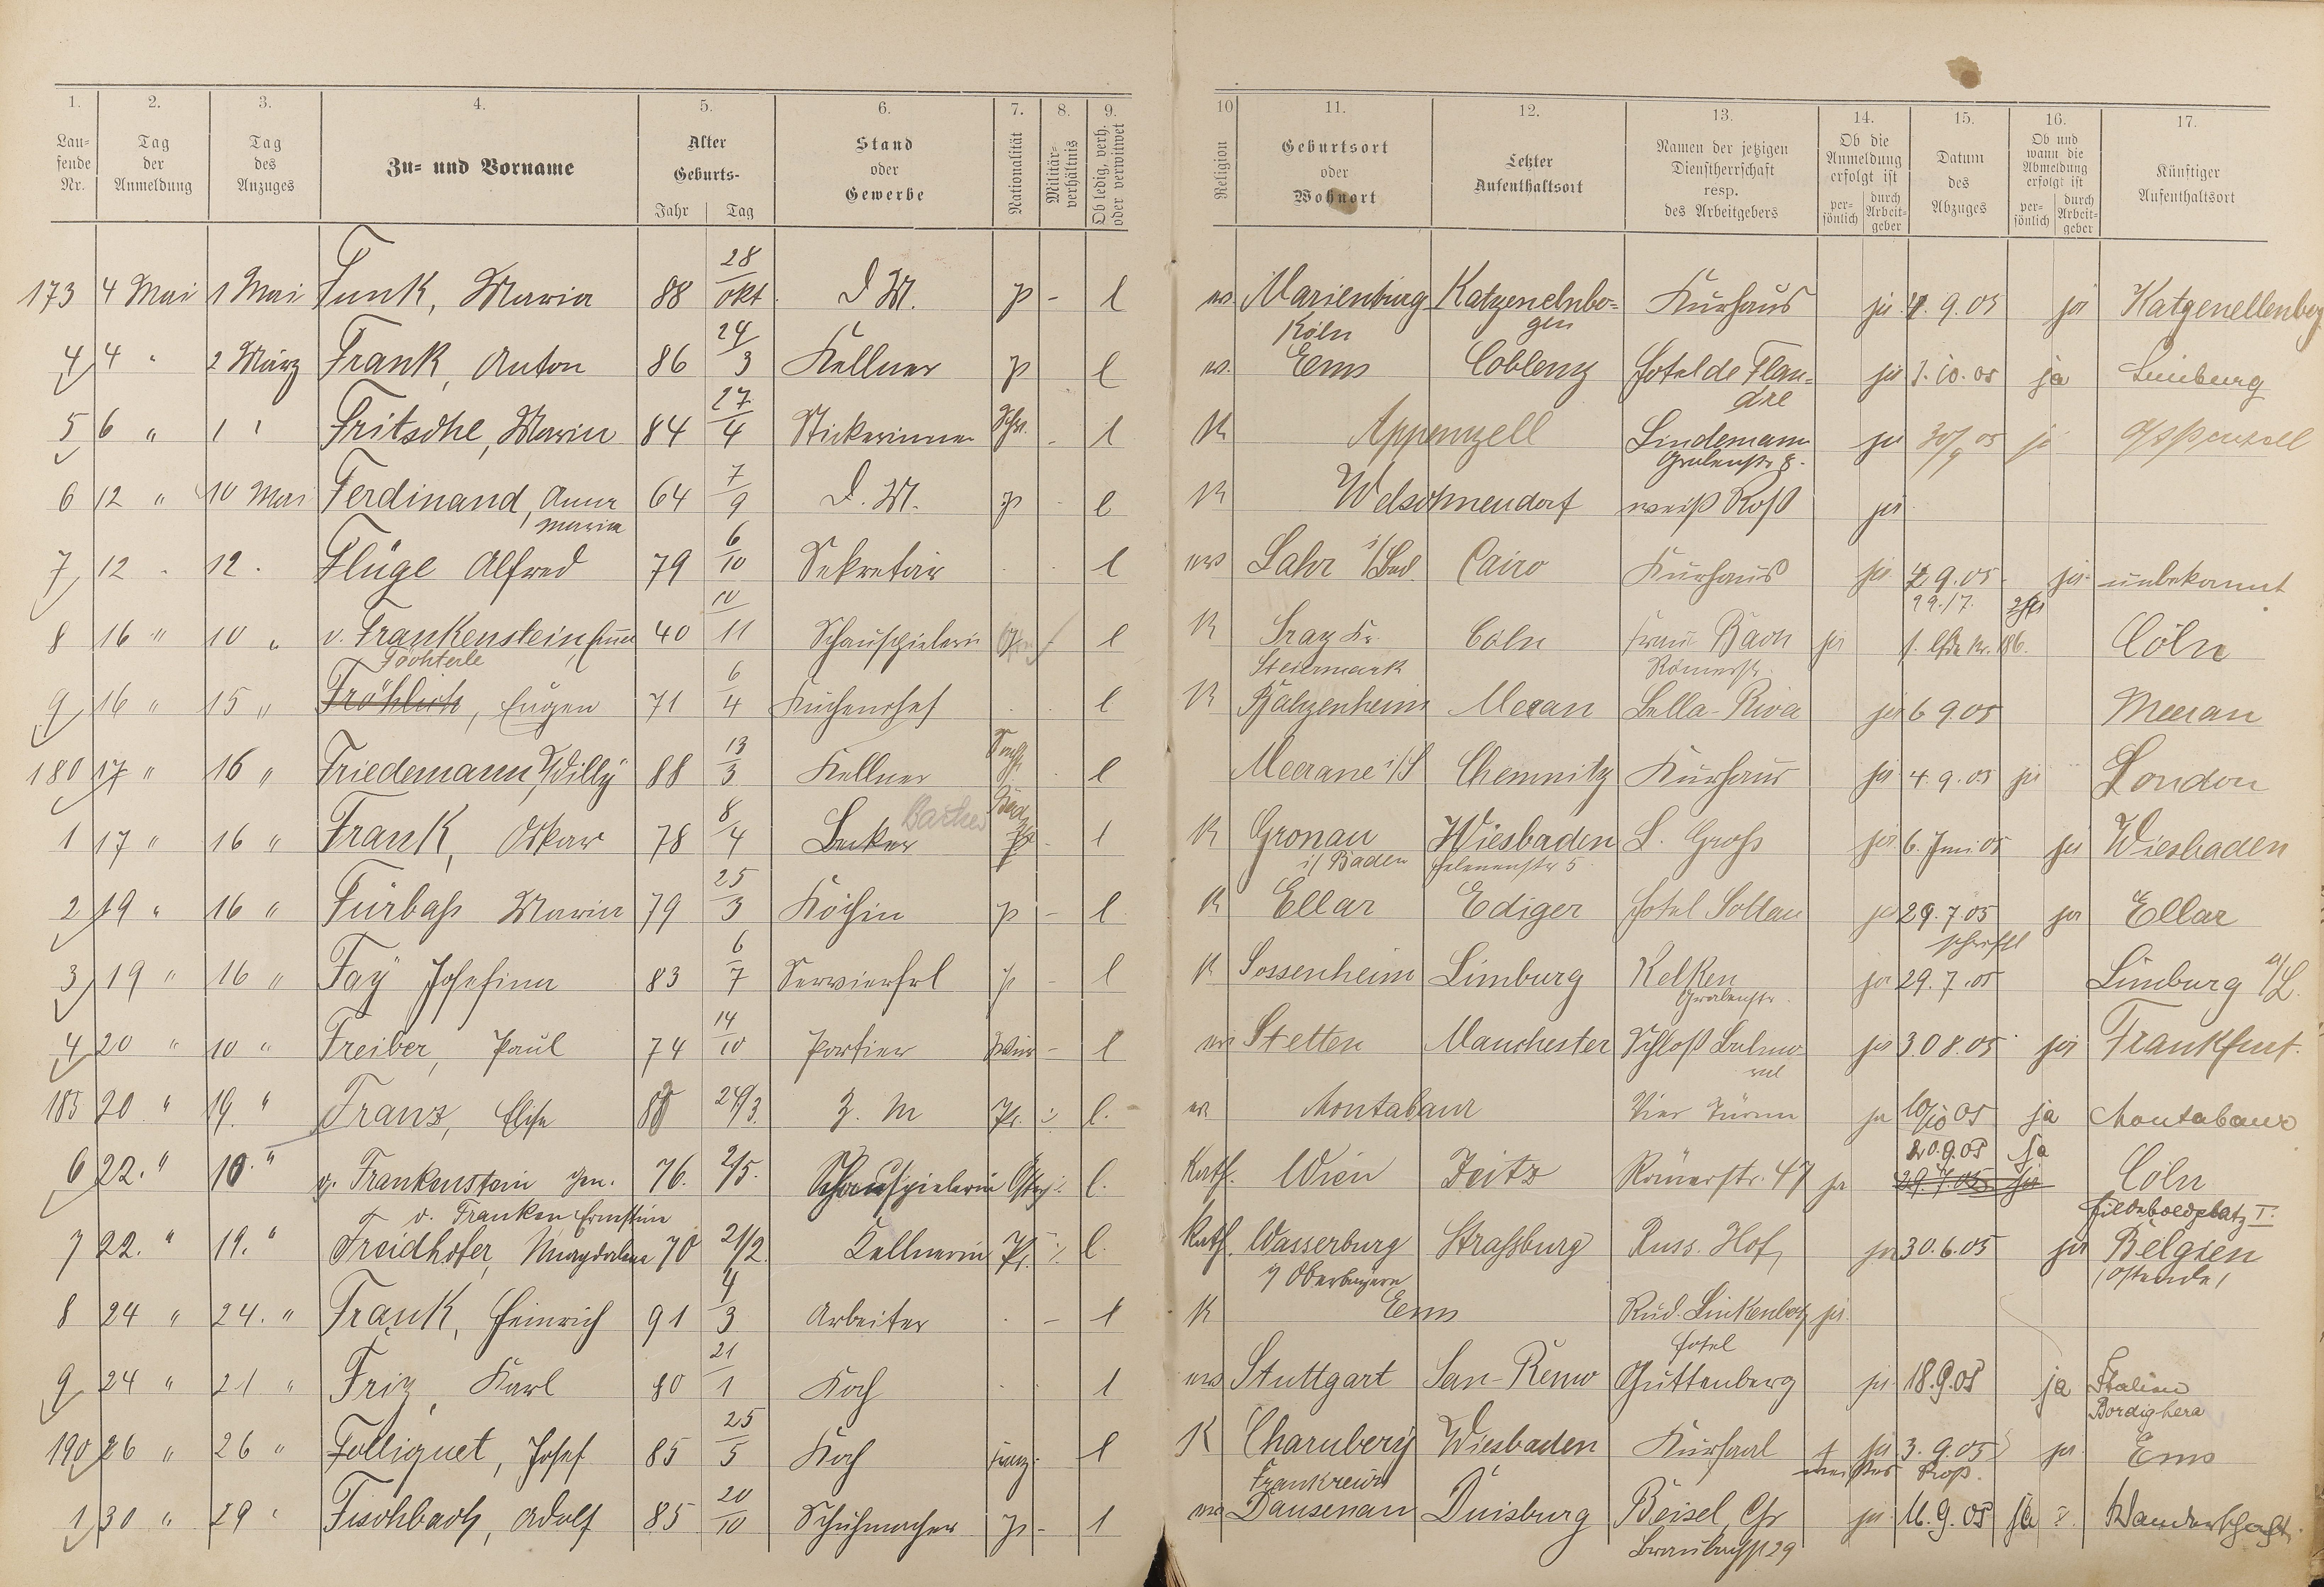 1. 2. 3. 4. 5. 6. 7. 8. 9. 10 11. 12. 13. 14. 15. 16. 17.
Laufende Nr. Tag der Anmeldung Tag des Anzuges Zu- und Vorname Alter Geburts- Jahr Tag Stand oder Gewerbe Nationalität Militärverhältnis Ob ledig, verh. oder verwitwet Religion Geburtsort oder Wohnort Letzter Aufenthaltsort Namen der jetzigen Dienstherrschaft resp. des Arbeitgebers Ob die Anmeldung erfolgt ist persönlich durch Arbeitgeber Datum des Abzuges Ob und wann die Abmeldung erfolgt ist persönlich durch Arbeitgeber Künftiger Aufenthaltsort
173 4 Mai 1 Mai Funk, Maria 88 28/okt. D M. p - l ev. Marienburg Köln Katzenelnbogen Kurhaus ja 9.05 ja Katzenellenbog
4 4 " 2 März Frank, Anton 86 24/3 Kellner p l ev. Ems Coblenz Hotel de Flandre ja 1.10.05 ja Limburg
5 6 " 1 " Fritsche, Maria 84 27/4 Stickerinnen Schw. - l K Appenzell Lindemann Grabenstr 8. ja 30/9 05 ja Appenzell
6 12 " 10 Mai Ferdinand, Anna Maria 64 7/9 D. M. p l K Welschneudorf weiß Roß ja
7 12 " 12 . Flüge Alfred 79 6/10 Sekretär l ev Lahr i/Bad. Cairo Kurhaus ja 9.05 ja unbekannt
8 16 " 10 " v. Frankenstein, Emma 40 10/11 Schauspielerin l K Graz Steiermark Cöln Frau Bach Römerstr. ja 29./7. Cöln
9 16 " 15 " Töchterle Fröhlich, Eugen 71 6/4 Küchenchef l K Balzenheim Meran Bella-Riva ja 6 9 05 Meeran
180 17 " 16 " Friedemann, Willy 88 13/3 Kellner Sachs. l Meerane i/S Chemnitz Kurhaus ja 4.9.05 ja London
1 17 " 16 " Frank, Oskar 78 8/4 Becker Bad. l K Gronau i/ Baden Wiesbaden Helenenstr 5 L. Groß ja 6. Juni 05 ja Wiesbaden
2 19 " 16 " Fürbaß Maria 79 25/3 Köchin p - l K Ellar Ediger Hotel Soltau ja 29.7 05 ja Ellar
3 19 " 16 " Fay Josefina 83 6/7 Servierfrl p - l K Sossenheim Limburg Kelken Grabenstr. ja schriftl 29.7.05 Limburg a/L.
4 20 " 10 " Freiber, Paul 74 14/10 Portier Würt - l ev Stetten Manchester Schloß Balmoral ja 30 8.05 ja Frankfurt.
185 20 " 19. " Franz, Elise 88 24/3. Z. M Pr. l. ev. Montabaur Vier Türme ja 10/10 05 ja Montabaur
6 22. " 10. " v. Frankenstein gen. v. Franken Ernestine 76. 2/5. Schauspielerin Östr. l. Kath. Wien Zeitz Römerstr. 47 ja 20.9.05 ja 29.7.05 ja Cöln Hildeboldplatz I.
7 22. " 19. " Freidhofer, Magdalena 70 21/2. Kellnerin Pr. l. Kath. Wasserburg i/ Oberbayern Straßburg Russ. Hof ja 30.6.05 ja Belgien (Ostende)
8 24 " 24. " Frank, Heinrich 91 4/3 Arbeiter - l K Ems Rud. Linkenbach ja
9 24 " 21 " Friz, Karl 80 21/1 Koch l ev Stuttgart San-Remo Hotel Guttenberg ja 18.9.05 ja Italien Bordighera
190 26 " 26 " Folliquet, Josef 85 25/5 Koch Franz. l K Chambery Frankreich Wiesbaden Kursaal + weißes Roß. ja 3.9.05 ja Ems
1 30 " 29 " Fischbach, Adolf 85 20/10 Schuhmacher p - l ev Dausenau Duisburg Beisel, Chr Braubachstr 29 ja 16.9.05 ja Wanderschaft.